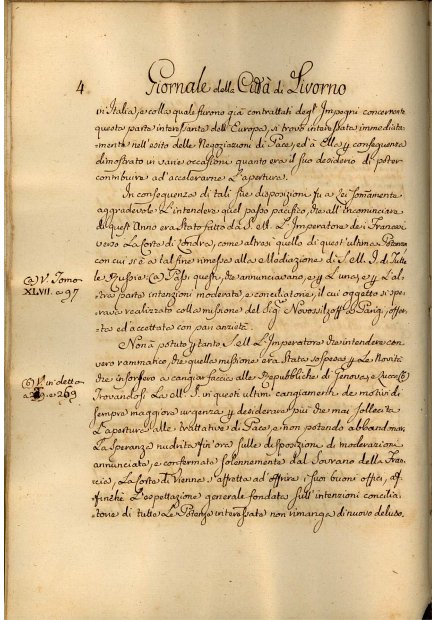 4 Giornale della Città di Livorno
in Italia, e colla quale furono già contrattati degl' Impegni concernenti
questa parte interessante dell' Europa, si trovò interessata immediata-
mente nell' esito delle Negoziazioni di Pace, ed à Ella p conseguenza
dimostrato in varie occasioni quanto era il suo desiderio di poter
contribuire ad accelerarne l'apertura.
In conseguenza di tali sue disposizioni fu a Lei sommamente
aggradevole l'intendere quel passo pacifico, che all' Incominciare
di quest' Anno era stato fatto da S. M. L'Imperatore dei Francesi
verso la Corte di Londra, come altresì quello di quest' ultima Potenza
con cui si è a tal fine rimessa alla Mediazione di S. M. I. di tutte
(a) V. Tomo
XLVII. a 97
le Russie: (a) Passi questi, che annunciavano, e p l'una, e p l'al-
tra parte intenzioni moderate, e conciliatorie, il cui oggetto si spe-
rava realizzato colla missione del Sig. Novossilzoff a Parigi, offer-
ta ed accettata con pari anzietà.
Non à potuto p tanto S. M. L'Imperatore che intendere con
vero rammarico, che quella missione era stata sospesa p le Novità
(b) V. in detto
a e 269
che insorsero a cangiar faccia alle Repubbliche di Genova, e Lucca (b)
Trovandosi La M. S. in questi ultimi cangiamenti de motivi di
sempre maggiore urgenza p desiderare più che mai sollecita
L'apertura alle trattative di Pace e non potendo abbandonare
La Speranza nudrita fin' ora sulle disposizioni di moderazione
annunciate, e confermate solennemente dal Sovrano della Fran-
cia, La Corte di Vienna s'affretta ad offrire i suoi buoni offici, af-
finchè L'espettazione generale fondata sull' intenzioni concilia-
torie di tutte Le Potenze interessate non rimanga di nuovo deluso.